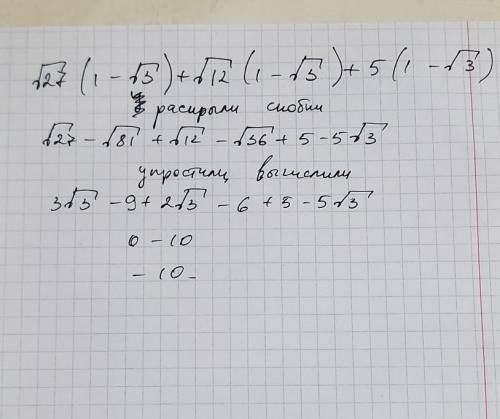 √27 (1 - √3) + √12 (1 - √3) + 5 (1 - √3)
раскрыли скобки
√27 - √81 + √12 - √36 + 5 - 5√3
упростили вычислили
3√3 - 9 + 2√3 - 6 + 5 - 5√3
0 - 10
- 10